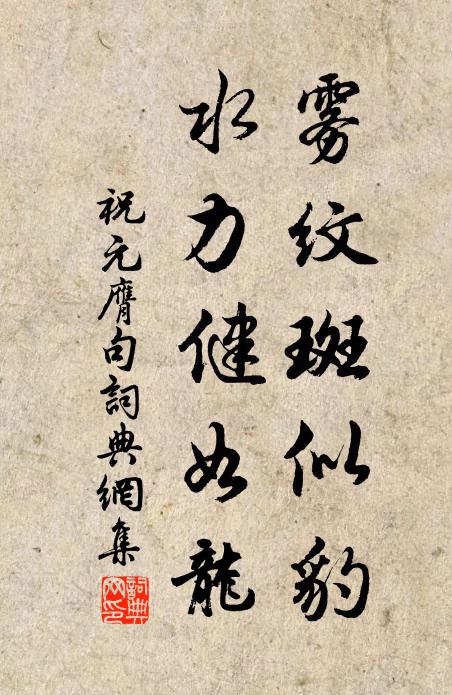 雾纹斑似豹
水力健如龍
祝元膺句詞典網集
詞典網印